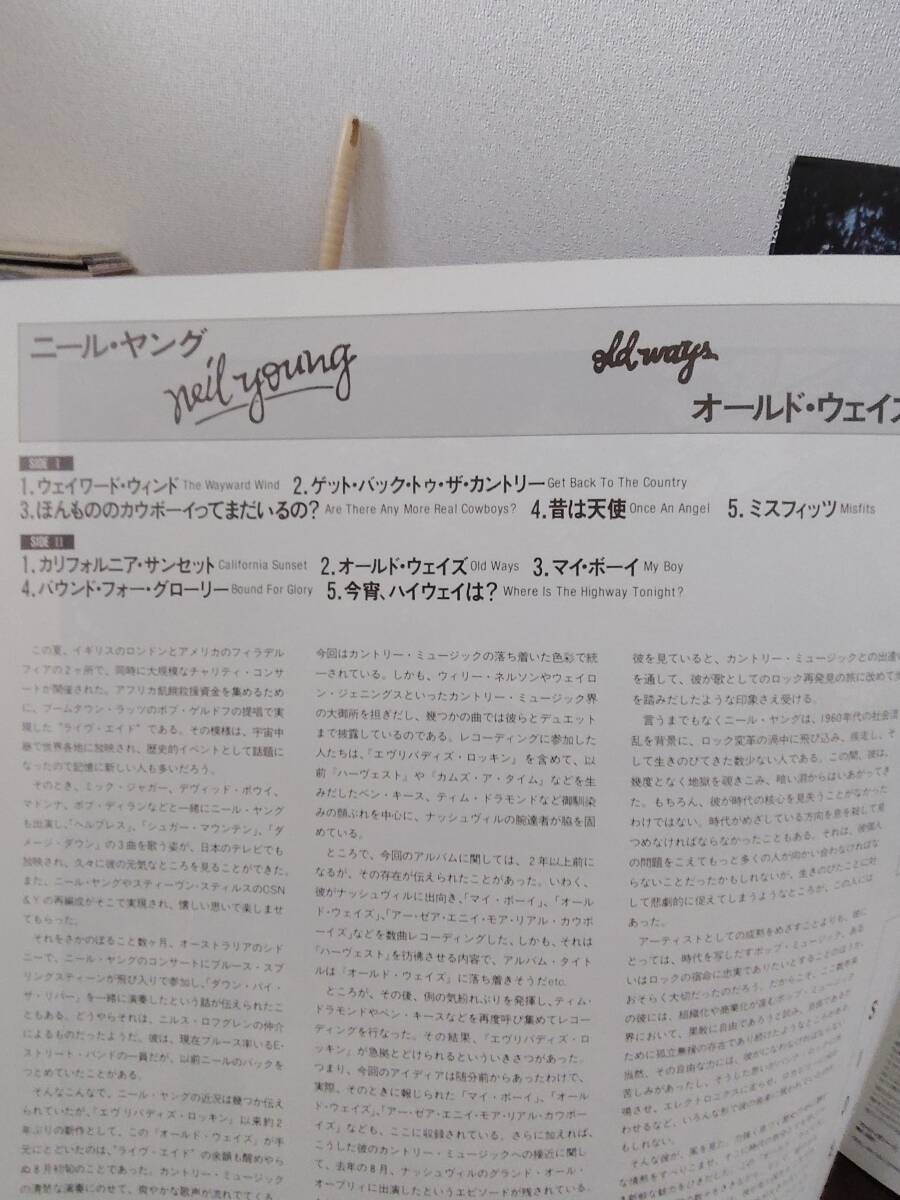 ニール・ヤング
neil young
old ways
オールド・ウェイズ
SIDE I
1.ウェイワード・ウィンド The Wayward Wind 2.ゲット・バック・トゥ・ザ・カントリー Get Back To The Country
3.ほんもののカウボーイってまだいるの? Are There Any More Real Cowboys? 4.昔は天使 Once An Angel 5.ミスフィッツ Misfits
SIDE II
1.カリフォルニア・サンセット California Sunset 2.オールド・ウェイズ Old Ways 3.マイ・ボーイ My Boy
4.バウンド・フォー・グローリー Bound For Glory 5.今宵、ハイウェイは? Where Is The Highway Tonight?
この夏、イギリスのロンドンとアメリカのフィラデル
フィアの2ヶ所で、同時に大規模なチャリティ・コンサ
ートが開催された。アフリカ飢餓救援資金を集めるため
に、ブームタウン・ラッツのボブ・ゲルドフの提唱で実
現した“ライヴ・エイド”である。その模様は、宇宙中
継で世界各地に放映され、歴史的イベントとして話題に
なったので記憶に新しい人も多いだろう。
そのとき、ミック・ジャガー、デヴィッド・ボウイ、
マドンナ、ボブ・ディランなどと一緒にニール・ヤング
も出演し、「ヘルプレス」、「シュガー・マウンテン」、「ダ
メージ・ダウン」の3曲を歌う姿が、日本のテレビでも
放映され、久々に彼の元気なところを見ることができた。
また、ニール・ヤングやスティーヴン・スティルスのCSN
&Yの再編成がそこで実現され、懐しい思いで楽しませ
てもらった。
それをさかのぼること数ヶ月、オーストラリアのシド
ニーで、ニール・ヤングのコンサートにブルース・スプ
リングスティーンが飛び入りで参加し、「ダウン・バイ・
ザ・リバー」を一緒に演奏したという話が伝えられたこ
ともある。どうやらそれは、ニルス・ロフグレンの仲介
によるものだったようだ。彼は、現在ブルース率いるE・
ストリート・バンドの一員だが、以前ニールのバックを
つとめていたことがある。
そんなこんなで、ニール・ヤングの近況は幾つか伝え
られていたが、「エヴリバディズ・ロッキン」以来約2
年ぶりの新作として、この「オールド・ウェイズ」が手
元にとどいたのは、“ライヴ・エイド”の余韻も醒めやら
ぬ8月初旬のことであった。カントリー・ミュージック
の清楚な演奏にのせて、爽やかな歌声が流れでてくる。
今回はカントリー・ミュージックの落ち着いた色彩で統
一されている。しかも、ウィリー・ネルソンやウェイロ
ン・ジェニングスといったカントリー・ミュージック界
の大御所を担ぎだし、幾つかの曲では彼らとデュエット
まで披露しているのである。レコーディングに参加した
人たちは、「エヴリバディズ・ロッキン」を含めて、以
前『ハーヴェスト』や『カムズ・ア・タイム』などを生
みだしたベン・キース、ティム・ドラモンドなど御馴染
みの顔ぶれを中心に、ナッシュヴィルの腕達者が脇を固
めている。
ところで、今回のアルバムに関しては、2年以上前に
なるが、その存在が伝えられたことがあった。いわく、
彼がナッシュヴィルに出向き、「マイ・ボーイ」、「オール
ド・ウェイズ」、「アー・ゼア・エニイ・モア・リアル・カウボ
ーイズ」などを数曲レコーディングした、しかも、それは
『ハーヴェスト』を彷彿させる内容で、アルバム・タイト
ルは『オールド・ウェイズ』に落ち着きそうだetc.
ところが、その後、例の気紛れぶりを発揮し、ティム・
ドラモンドやベン・キースなどを再度呼び集めてレコー
ディングを行なった。その結果、『エヴリバディズ・ロ
ッキン』が急拠とどけられるといういきさつがあった。
つまり、今回のアイディアは随分前からあったわけで、
実際、そのときに報じられた「マイ・ボーイ」、「オール
ド・ウェイズ」、「アー・ゼア・エニイ・モア・リアル・カウボー
イズ」なども、ここに収録されている。さらに加えれば、
こうした彼のカントリー・ミュージックへの接近に関し
て、去年の8月、ナッシュヴィルのグランド・オール・
オープリィに出演したというエピソードが残されている。
彼を見ていると、カントリー・ミュージックとの出逢い
を通して、彼が歌としてのロック再発見の旅に改めて歩
を踏みだしたような印象さえ受ける。
言うまでもなくニール・ヤングは、1960年代の社会混
乱を背景に、ロック変革の渦中に飛び込み、疾走し、そ
して生きのびてきた数少ない人である。この間、彼は、
幾度となく地獄を覗きこみ、暗い淵からはいあがってき
た。もちろん、彼が時代の核心を見失うことがなかった
わけではない。時代がめざしている方向を息を殺して見
つめなければならなかったこともある。それは、彼個人
の問題をこえてもっと多くの人が向かい合わなければな
らないことだったかもしれないが、生きのびたことに対
して悲劇的に捉えてしまうようなところが、この人には
あった。
アーティストとしての成熟をめざすことよりも、彼に
とっては、時代を写しだすポップ・ミュージック、ある
いはロックの宿命に忠実でありたいとすることのほうが、
おそらく大切だったのだろう。だからこそ、ここ数年来
の彼には、組織化や商業化が進むポップ・ミュージック
界において、果敢に自由であろうと試み、自由であるが
ために孤立無援の存在であり続けたようなところがある。